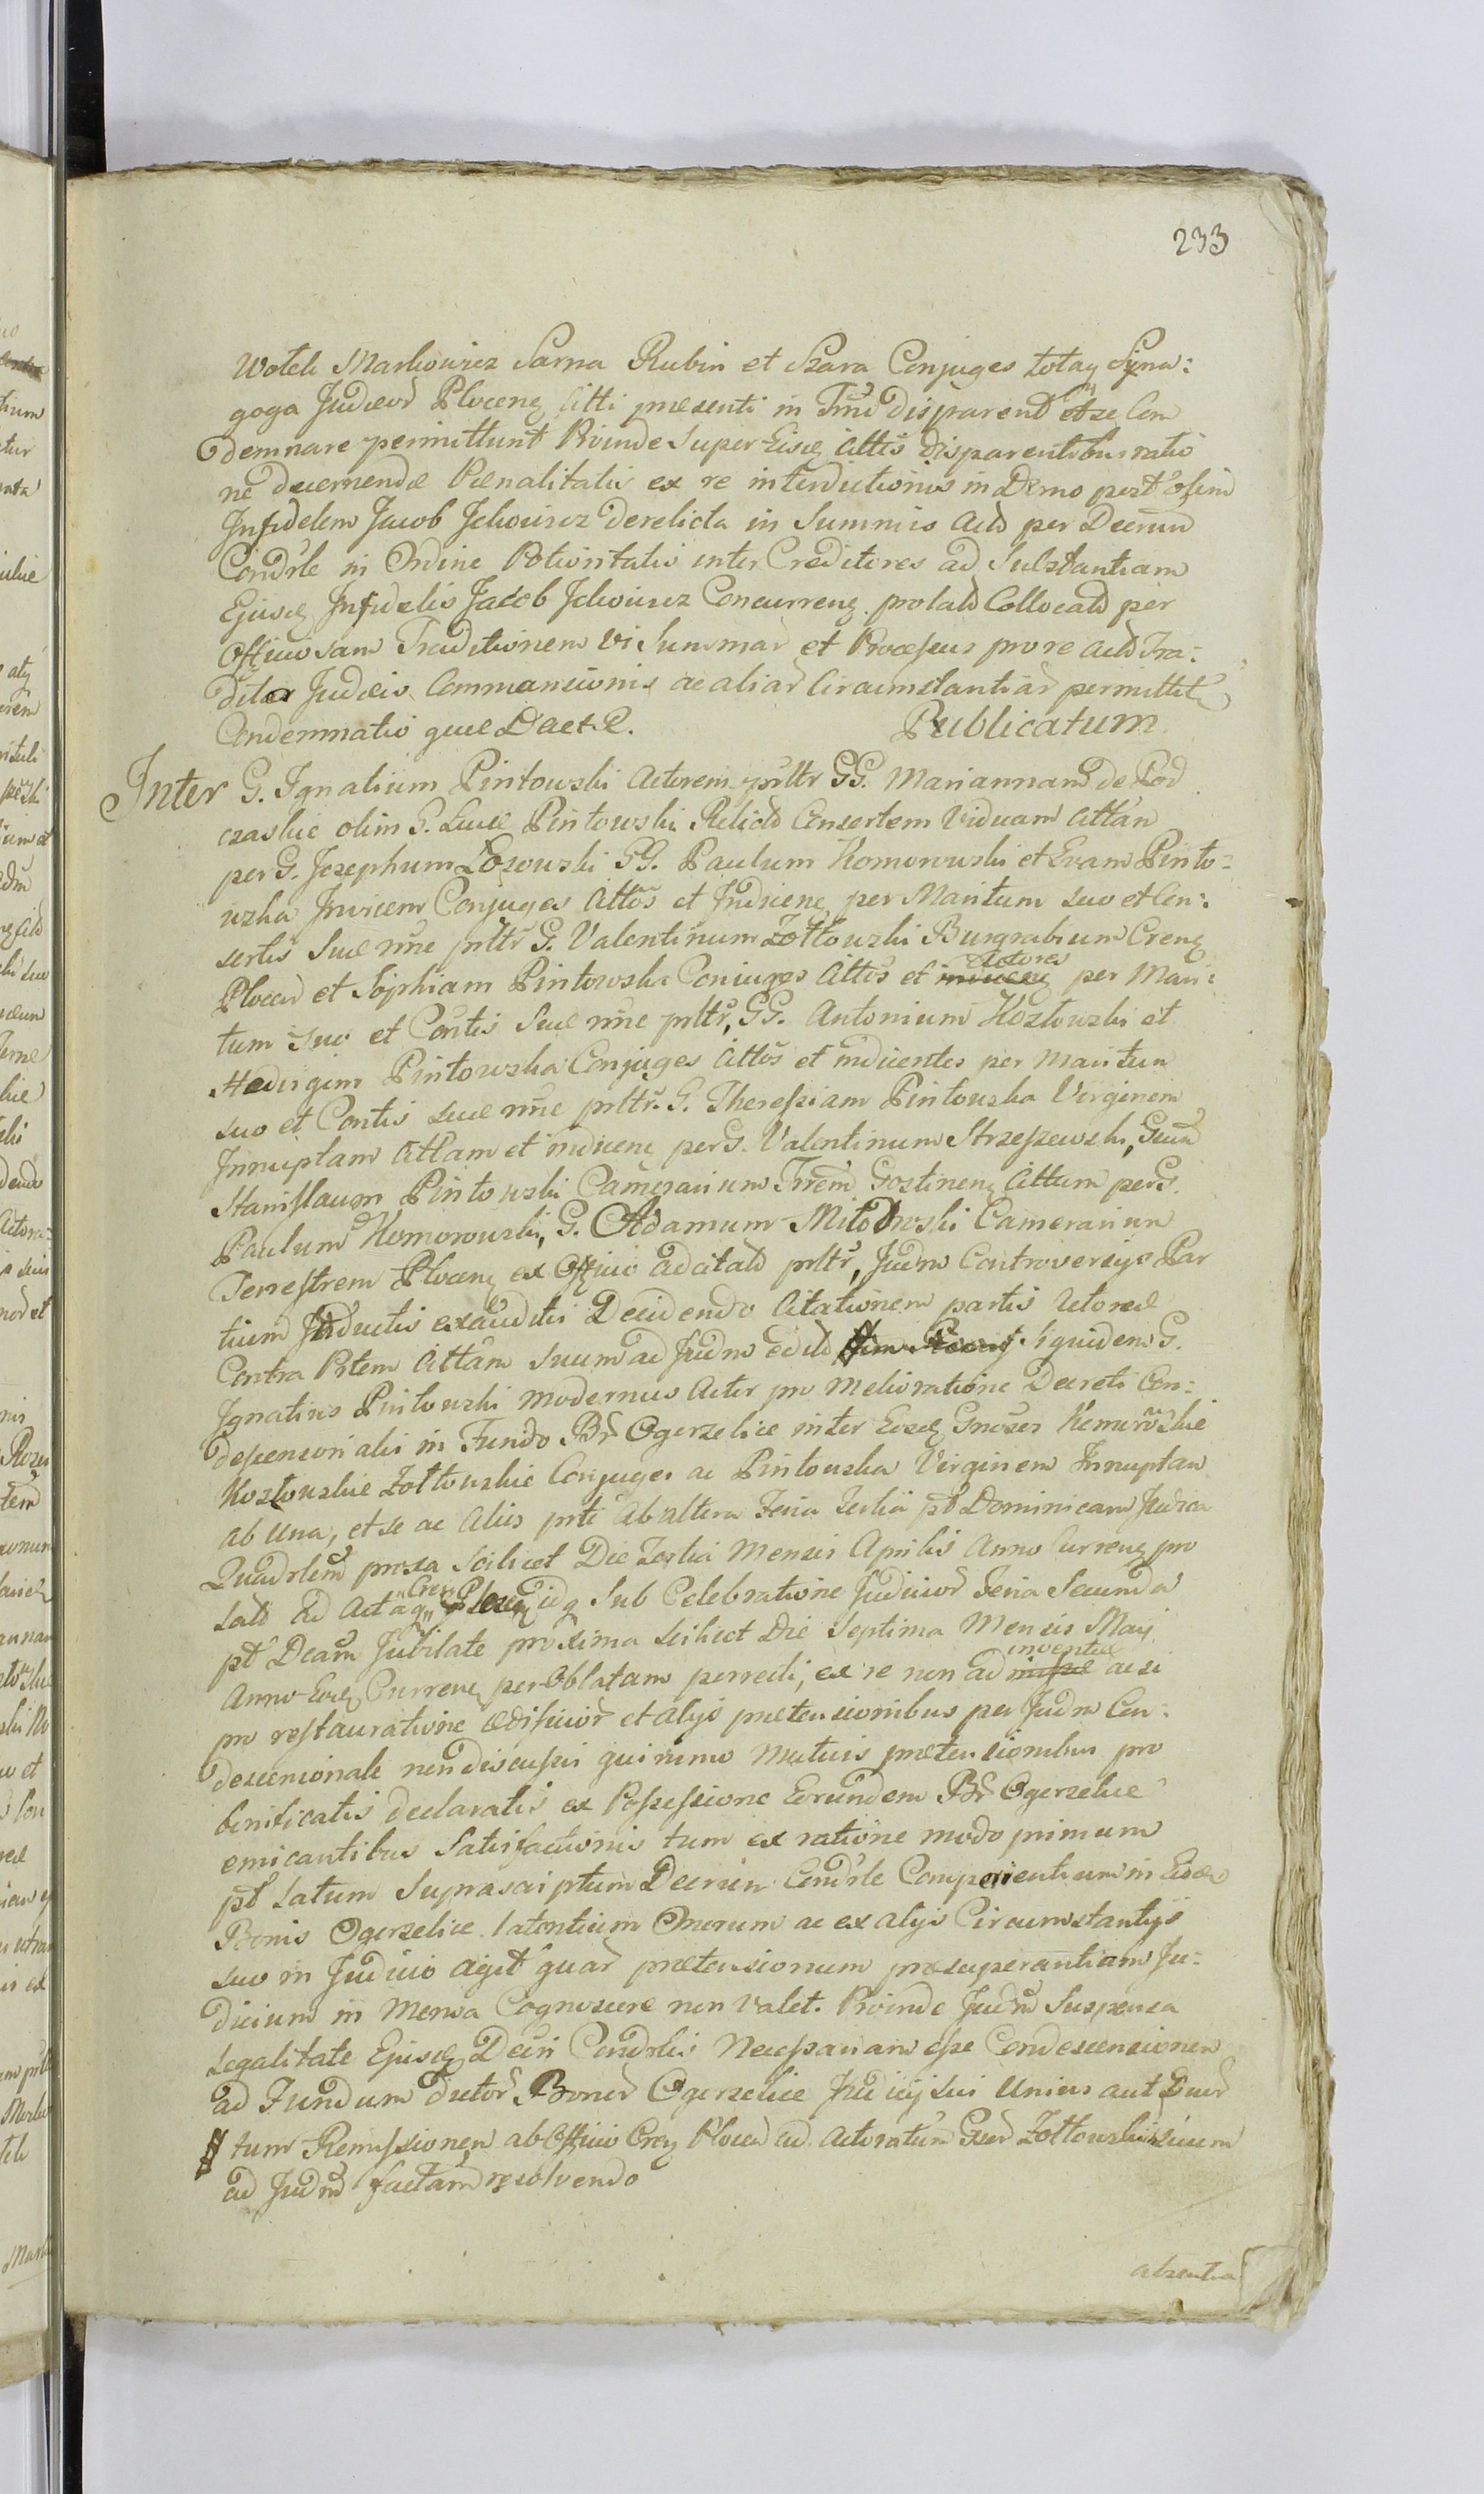 233
Wolek Markowicz Sarna Rubin et Szara Conjuges totaq Syna:
goga Judæor Plocenꝫ Citti præsenti in Tmō disparend et se Con
demnare permittunt Proinde Super Eisdꝫ Cittis disparentibus ratio
ne decernendæ Pœnalitatis ex re interdictionis in Domo post olim
Infidelem Jacob Jckowicz derelicta in Summis Actō per Decrum
Condrle in Ordine Potioritatis inter Creditores ad Substantiam
Ejusdꝫ Infidelis Jacob Jckowicz Concurrenꝫ prolatō Collocatō per
Officiosam Traditionem vi Summar et Processus pro re Actō Tra:
dita Judicio Commansionis ac aliar Circumstantiar permittit
Condemnatio quæ D et R. Publicatum
Inter G. Ignatium Pintowski Actorem prltr GG. Mariannam de Pod
czaskie olim G. Lucæ Pintowski Relictō Consortem Viduam Cittan
per G. Josephum Łosowski GG. Paulum Komorowski et Evam Pinto-
wska Invicem Conjuges Cittōs et Indicenꝫ per Maritum suo et Con:
sortis Suæ nīne prltr G. Valentinum Żółtowski Burgrabium Crenꝫ
Plocen et Sophiam Pintowska Coniuges Cittōs et Actores per Mari:
tum Suo et Contis Suæ nīne prltr, GG. Antonium Kozłowski et
Hedvigem Pintowska Conjuges Cittōs et indicentes per Maritum
suo et Contis suæ nīne prltr. G. Theressiam Pintowska Virginem
Innuptam Cittam et indicenꝫ per G. Valentinum Strzeszewski, Gsum
Stanislaum Pintowski Camerarium Trrem Gostinenꝫ Cittum per G.
Paulum Komorowski, G. Adamum Miłodrowski Camerarium
Terrestrem Plocenꝫ ex Officio adcitatō prltr, Judm Controversijs Par
tium Inductis exauditis Decidendo Citationem partis Actoreæ
Contra Ptem Cittam Suum ad Judm edito Siquidem G.
Ignatius Pintowski modernus Actor pro melioratione Decreti Con:
descensorialis in Fundo Br Ogorzelice inter Eosdꝫ Gnosos Komorowskie
Kozłowskie Żółtowskie Conjuges ac Pintowska Virginem Innuptam
ab una, et se ac Alias pte ab altera Feria Tertia pt Dominicam Judica
Quadrlem proxa Scilicet Die Tertia Mensis Aprilis Anno Currenꝫ pro
lati Ad Acta Crenꝫ idq Sub Celebratione Judicior Feria Secunda
pt Dcam Jubilate proxima scilicet Die Septima Mensis Maij
Anno Eodꝫ Currenꝫ per Oblatam perrecti, ex re non ad inventæ ac si
pro restauratione ædificior et alijs prætensionibus per Judm Con:
descensionale non discussis quinimo mutuis prætensionibus pro
bonificatis declaratis ex Possessione Eorundem Br Ogorzelice
emicantibus Satisfactionis tum ex ratione modo primum
pt Latum Suprascriptum Decrum Condrle Comperientium in Eisdꝫ
Bonis Ogorzelice latentium Onerum ac ex alijs Circumstantijs
suo in Judicio agit quar prætensionum præsuperantiam Ju:
dicium in Mensa Cognoscere non valet. Proinde Judm Suspensa
Legalitate Ejusdꝫ Decri Condrlis Necessariam esse Condescensionem
ad Fundum dictor Bonor Ogorzelice Judicij sui Unius aut Duor
tum Remissionem ab Officio Crenꝫ Plocen ad Actoratum Gsor Żółtowskich suum
ad Judm factam resolvendo
absentia